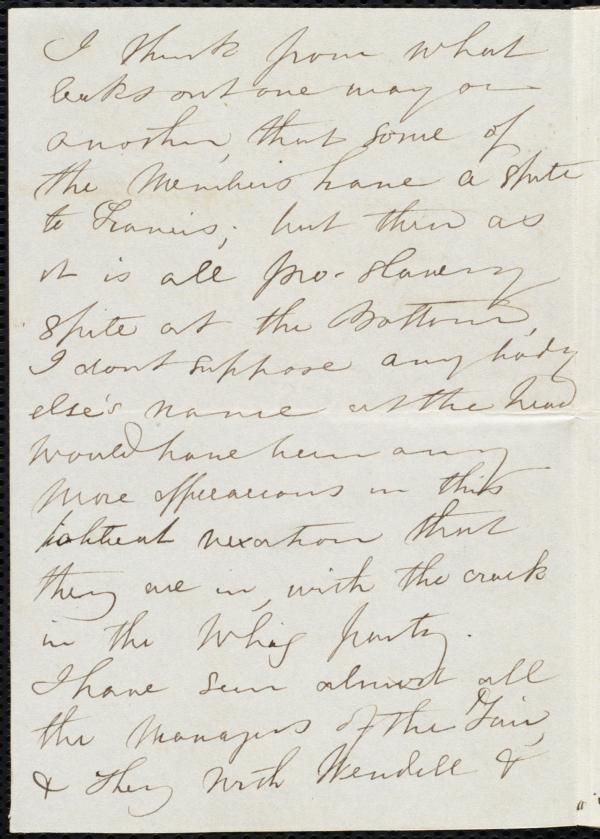 I think from what
leaks out one way or
another, that some of
the Members have a spite
to Francis; but then as
it is all pro-slavery
spite at the Bottom,
I dont suppose any body
else's name at the head
would have been any
more efficacious in this
political vexation that
they are in, with the crack
in the Whig party.
I have seen almost all
the Managers of the Fair,
& they with Wendell &